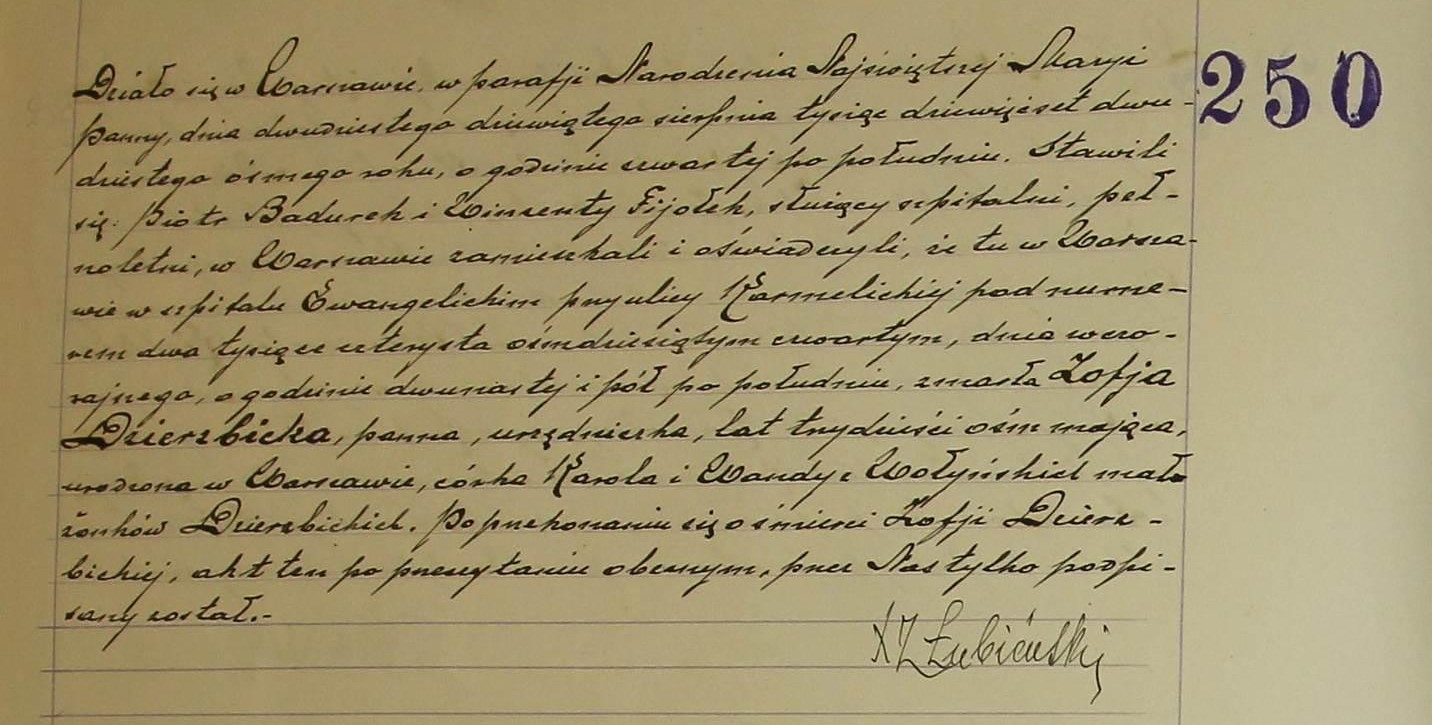 Działo się w Warszawie, w parafji Narodzenia Najświętszej Maryi
250
Panny, dnia dwudziestego dziewiątego sierpnia tysiąc dziewięćset dwu-
dziestego ósmego roku, o godzinie czwartej po południu. Stawili
się: Piotr Badurek i Wincenty Fijołek, służący szpitalni, peł-
noletni, w Warszawie zamieszkali i oświadczyli, że tu w Warsza-
wie w szpitalu Ewangelickim przy ulicy Karmelickiej pod nume-
rem dwa tysiące czterysta ośmdziesiątym czwartym, dnia wczo-
rajszego, o godzinie dwunastej i pół po południu, zmarła Zofja
Dzierzbicka, panna, urzędniczka, lat trzydzieści ośm mająca,
urodzona w Warszawie, córka Karola i Wandy z Wołyńskich mał-
żonków Dzierzbickich. Po przekonaniu się o śmierci Zofji Dzierz-
bickiej, akt ten po przeczytaniu obecnym, przez Nas tylko podpi-
sany został.-
X Z Łubieński